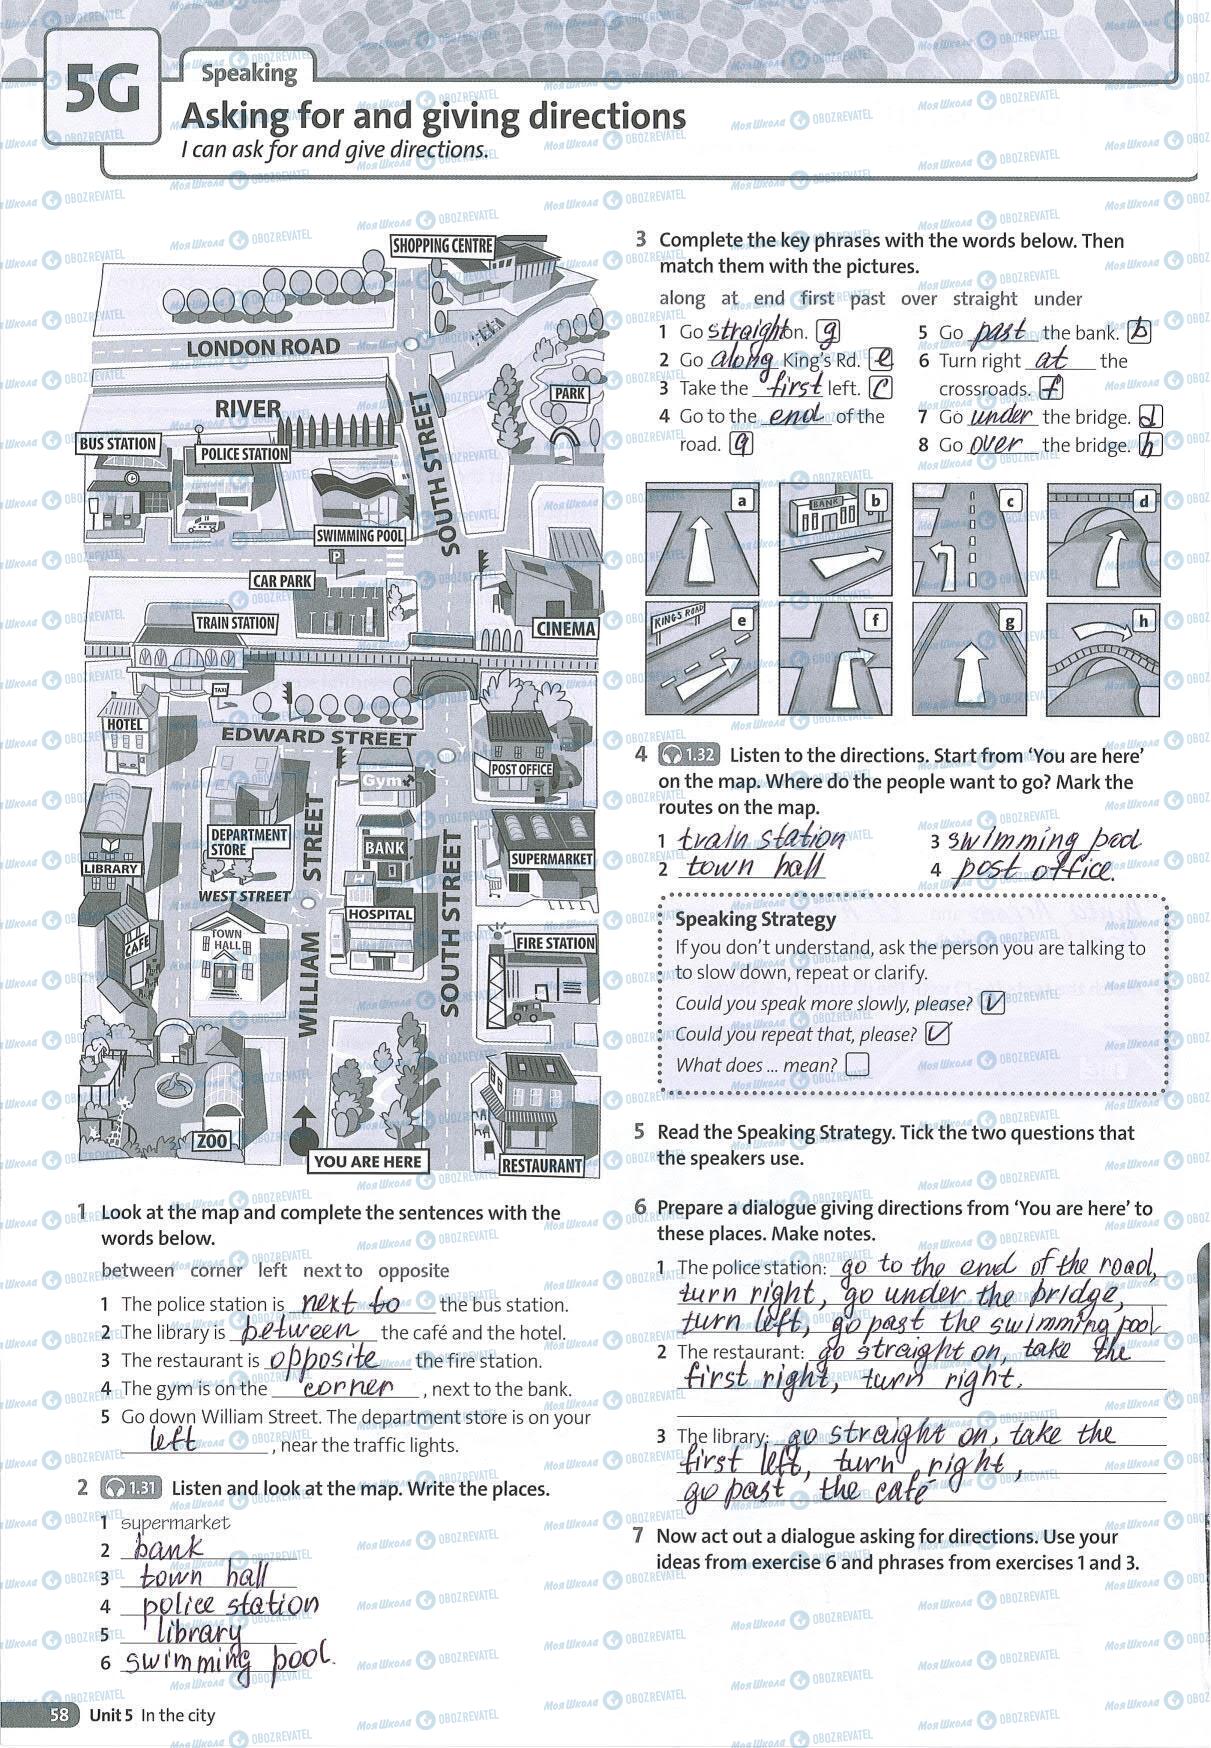 5G
Speaking
Asking for and giving directions
I can ask for and give directions.
SHOPPING CENTRE
LONDON ROAD
RIVER
PARK
BUS STATION
POLICE STATION
SOUTH STREET
SWIMMING POOL
P
CAR PARK
TRAIN STATION
CINEMA
TAXI
HOTEL
EDWARD STREET
Gym
POST OFFICE
DEPARTMENT
STORE
WILLIAM STREET
BANK
SUPERMARKET
LIBRARY
WEST STREET
H
HOSPITAL
SOUTH STREET
CAFE
TOWN
HALL
FIRE STATION
ZOO
YOU ARE HERE
RESTAURANT
1 Look at the map and complete the sentences with the
words below.
between corner left next to opposite
1 The police station is next to the bus station.
2 The library is between the café and the hotel.
3 The restaurant is opposite the fire station.
4 The gym is on the corner, next to the bank.
5 Go down William Street. The department store is on your
left, near the traffic lights.
2 1.31 Listen and look at the map. Write the places.
1 supermarket
2 bank
3 town hall
4 police station
5 library
6 swimming pool.
3 Complete the key phrases with the words below. Then
match them with the pictures.
along at end first past over straight under
1 Go straight on. g
2 Go along King's Rd. e
3 Take the first left. c
4 Go to the end of the
road. a
5 Go past the bank. b
6 Turn right at the
crossroads. f
7 Go under the bridge. d
8 Go over the bridge. h
a
BANK
b
c
d
KING'S ROAD
e
f
g
h
4 1.32 Listen to the directions. Start from 'You are here'
on the map. Where do the people want to go? Mark the
routes on the map.
1 train station
2 town hall
3 swimming pool
4 post office.
Speaking Strategy
If you don't understand, ask the person you are talking to
to slow down, repeat or clarify.
Could you speak more slowly, please? V
Could you repeat that, please? V
What does ... mean?
5 Read the Speaking Strategy. Tick the two questions that
the speakers use.
6 Prepare a dialogue giving directions from 'You are here' to
these places. Make notes.
1 The police station: go to the end of the road,
turn right, go under the bridge,
turn left, go past the swimming pool
2 The restaurant: go straight on, take the
first right, turn right.
3 The library: go straight on, take the
first left, turn right,
go past the café
7 Now act out a dialogue asking for directions. Use your
ideas from exercise 6 and phrases from exercises 1 and 3.
58 Unit 5 In the city
Моя Школа OBOZREVATEL